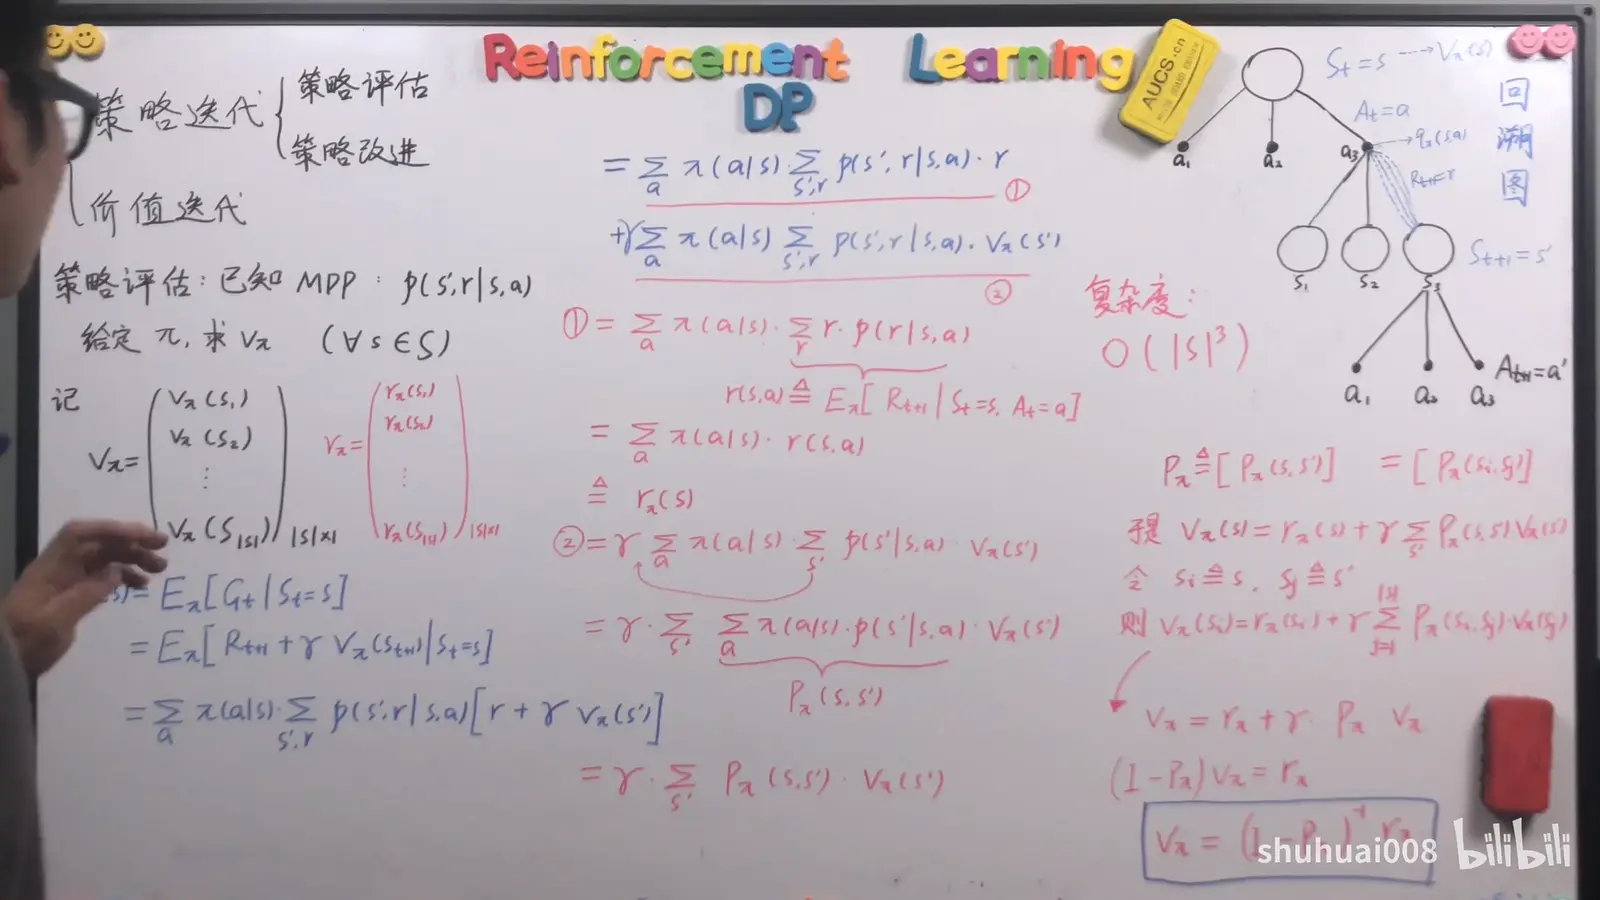 Reinforcement Learning
DP
AUCS.cn
策略迭代 { 策略评估
策略改进
价值迭代
策略评估：已知 MDP： p(s',r|s,a)
给定 π, 求 Vπ （∀s∈S）
记
Vπ = ( Vπ(s₁)
Vπ(s₂)
⋮
Vπ(s|s|) ) |S|×1
rπ = ( rπ(s₁)
rπ(s₂)
⋮
rπ(s|s|) ) |S|×1
(s) = Eπ[Gt | St=s]
= Eπ[Rt+1 + γ Vπ(St+1) | St=s]
= Σa π(a|s)·Σs',r p(s',r|s,a)[r + γ Vπ(s')]
= Σa π(a|s)·Σs',r p(s',r|s,a)·r ①
+γ Σa π(a|s) Σs',r p(s',r|s,a)·Vπ(s') ②
① = Σa π(a|s)·Σr r·p(r|s,a)
r(s,a) ≜ Eπ[Rt+1 | St=s, At=a]
= Σa π(a|s)·r(s,a)
≜ rπ(s)
② = γ Σa π(a|s)·Σs' p(s'|s,a)·Vπ(s')
= γ·Σs' Σa π(a|s)·p(s'|s,a)·Vπ(s')
Pπ(s,s')
= γ·Σs' Pπ(s,s')·Vπ(s')
St=s ⇢ Vπ(s)
At=a
→ qπ(s,a)
Rt+1=r
a₁ a₂ a₃
s₁ s₂ s₃
St+1=s'
a₁ a₂ a₃
At+1=a'
回溯图
复杂度：
O(|S|³)
Pπ ≜ [Pπ(s,s')] = [Pπ(si,sj)]
于是 Vπ(s) = rπ(s) + γ Σs' Pπ(s,s') Vπ(s')
令 si ≜ s, sj ≜ s'
则 Vπ(si) = rπ(si) + γ Σj=1|S| Pπ(si,sj)·Vπ(sj)
Vπ = rπ + γ· Pπ Vπ
(I-Pπ)Vπ = rπ
Vπ = (I-Pπ)⁻¹ rπ
shuhuai008 bilibili